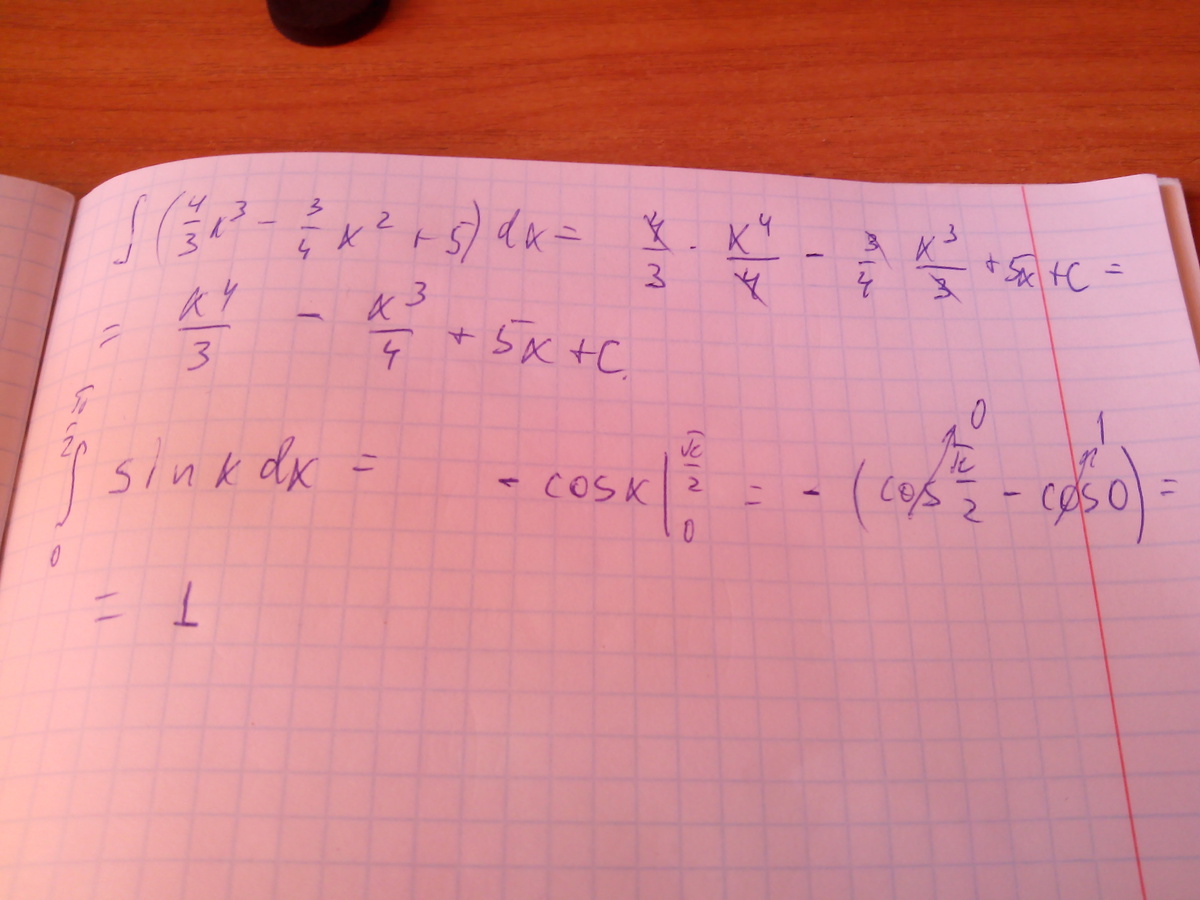 ∫ (4/3 x³ − 3/4 x² + 5) dx = 4/3 · x⁴/4 − 3/4 x³/3 + 5x + C =
= x⁴/3 − x³/4 + 5x + C.
∫₀^(π/2) sin x dx = − cos x |₀^(π/2) = − (cos π/2 ↗ 0 − cos 0 ↗ 1) =
= 1